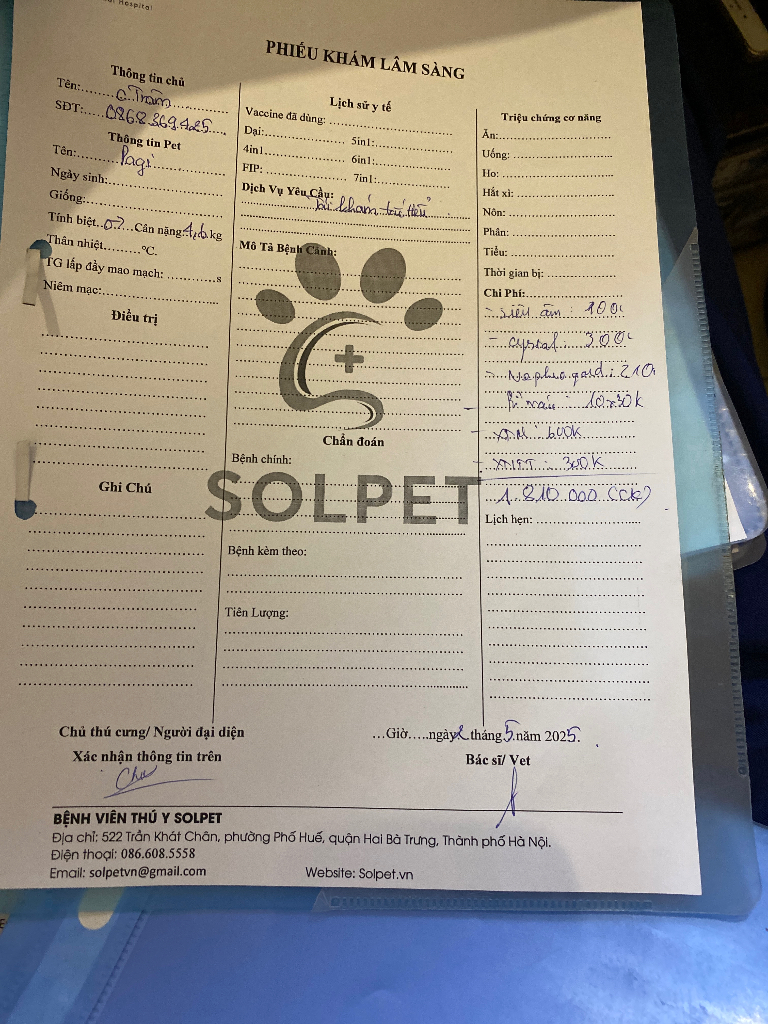 Hospital
PHIẾU KHÁM LÂM SÀNG
Thông tin chủ
Tên: C. Trâm
SĐT: 0868.369.425
Thông tin Pet
Tên: Pagi
Ngày sinh:
Giống:
Tính biệt Cân nặng 4,6 kg
Thân nhiệt.........°C.
TG lấp đầy mao mạch: ............s
Niêm mạc:
Điều trị
Ghi Chú
Lịch sử y tế
Vaccine đã dùng:
Dại: 5in1:
4in1 6in1:
FIP: 7in1:
Dịch Vụ Yêu Cầu:
khám
Mô Tả Bệnh Cảnh:
Chẩn đoán
Bệnh chính:
SOLPET
Bệnh kèm theo:
Tiên Lượng:
Triệu chứng cơ năng
Ăn:
Uống:
Ho:
Hắt xì:
Nôn:
Phân:
Tiểu:
Thời gian bị:
Chi Phí:
- siêu âm : 100
- cystaf : 300
- Nephro gard : 210
máu 10x30k
- XN : 600k
- XNNT : 300k
1.810.000 (CK)
Lịch hẹn:
Chủ thú cưng/ Người đại diện
Xác nhận thông tin trên
...Giờ.....ngày 2 tháng 5 năm 2025.
Bác sĩ/ Vet
BỆNH VIÊN THÚ Y SOLPET
Địa chỉ: 522 Trần Khát Chân, phường Phố Huế, quận Hai Bà Trưng, Thành phố Hà Nội.
Điện thoại: 086.608.5558
Email: solpetvn@gmail.com Website: Solpet.vn